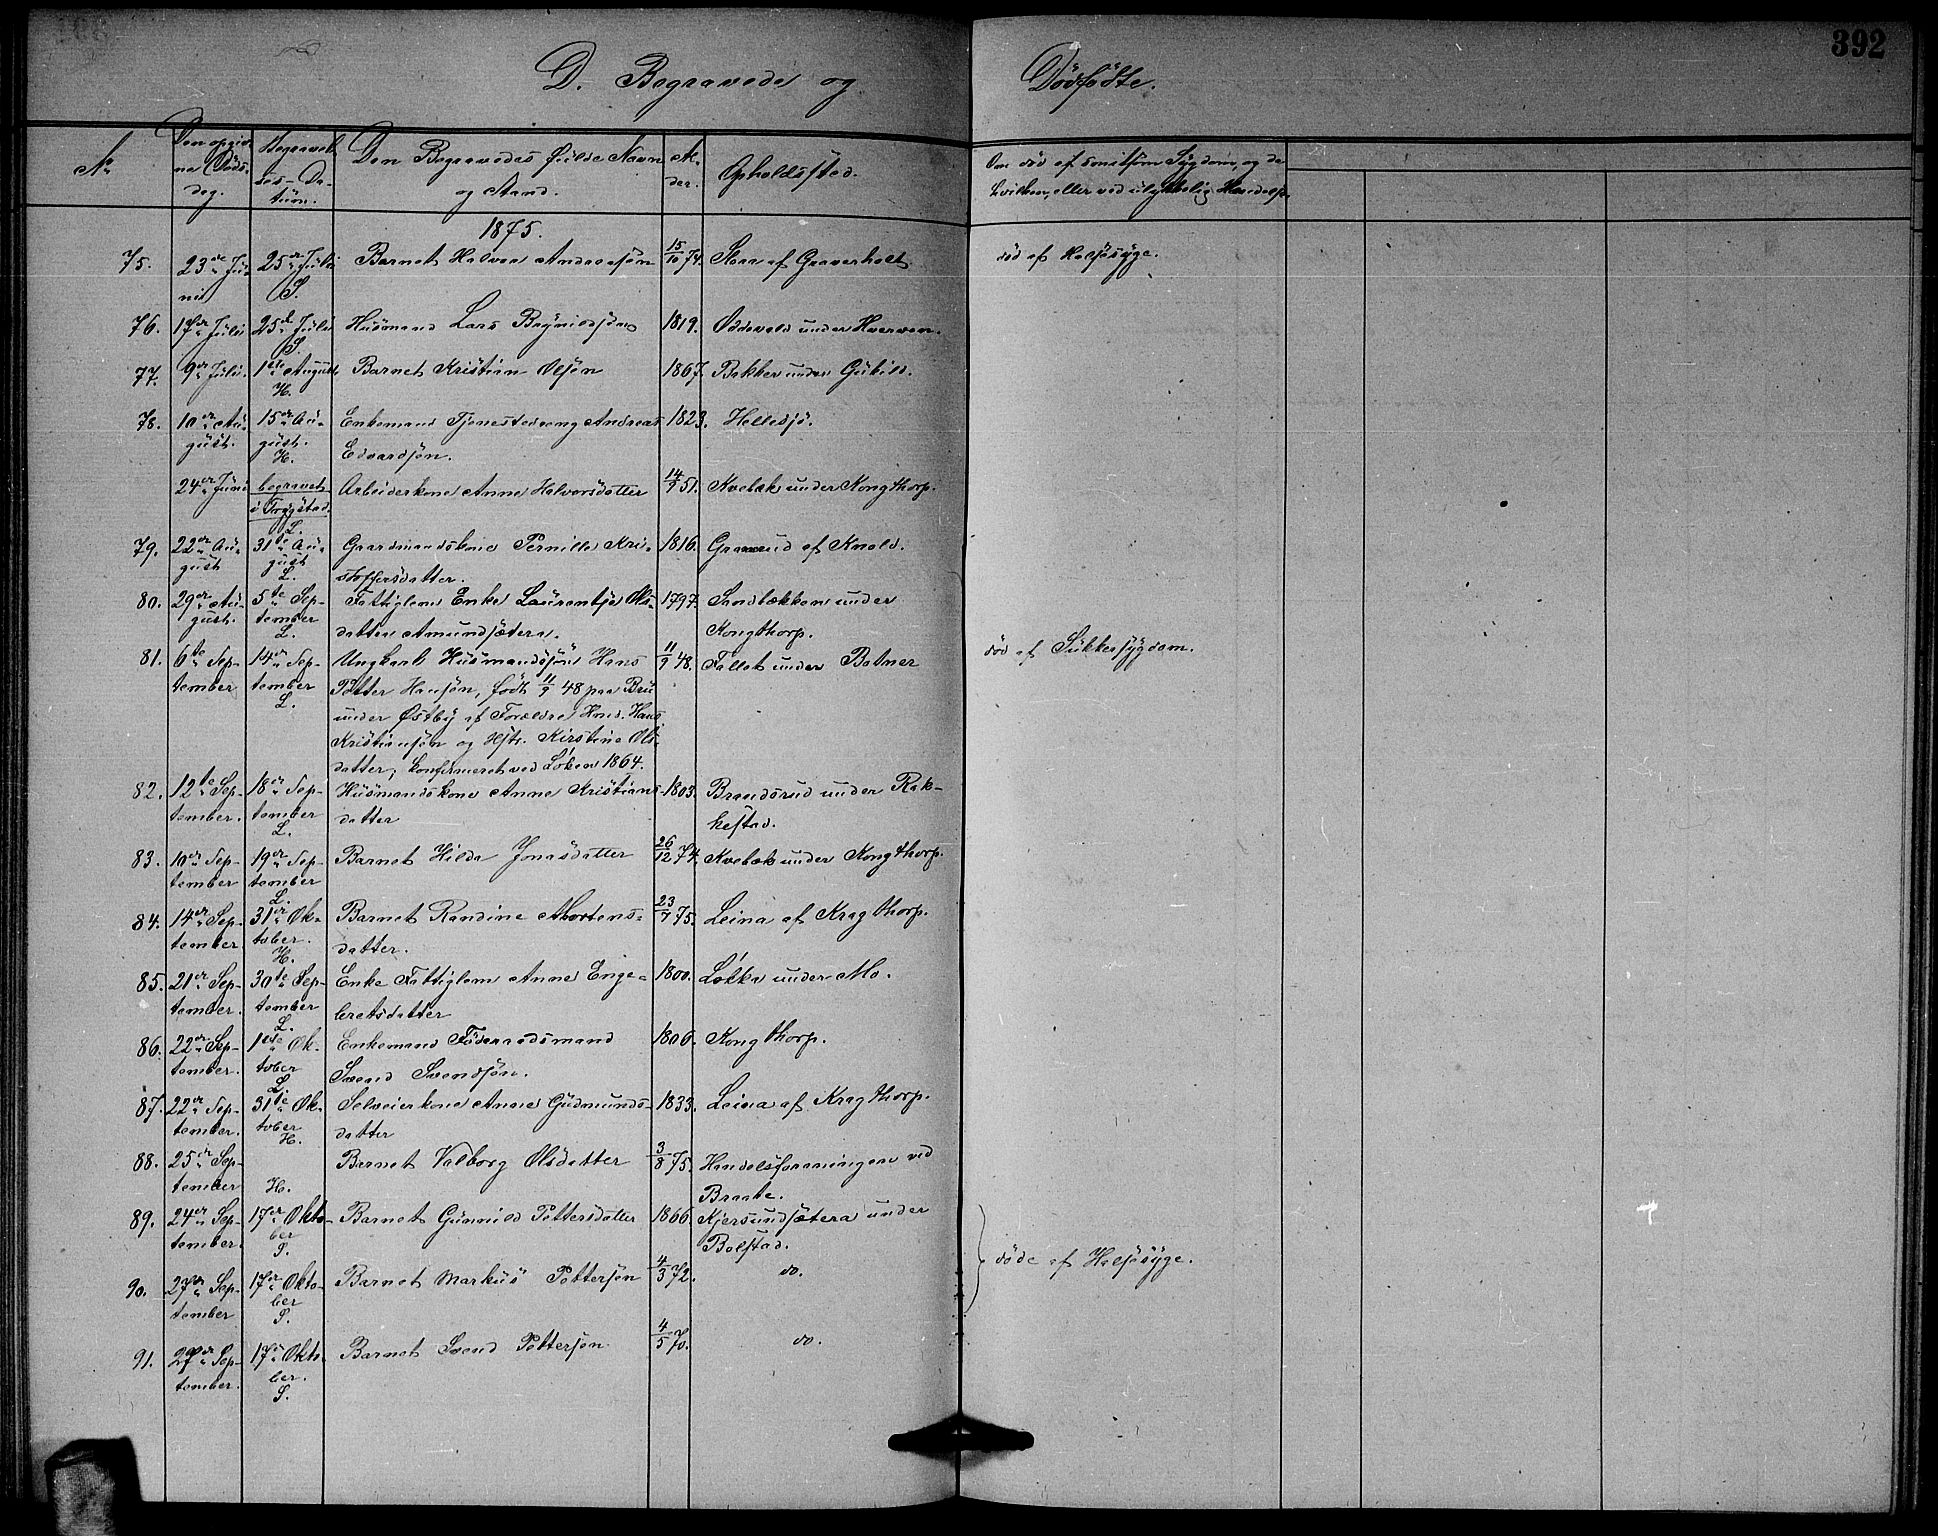 392
D. Begravede og Dødfødte.
No
Den opgivne Dødsdag.
Begravelses-Datum.
Den Begravedes fulde Navn og Stand.
Alder.
Opholdssted.
Om død af smitsom Sygdom, og da
hvilken, eller ved ulykkelig Hændelse.
1875.
75. 23de Juni 25de Juli S. Barnet Halvor Andreasøn 15/10 74. af Graverholt død af Halssyge.
76. 17de Juli 25de Juli S. Husmand Lars Brynildsøn 1819. Oddevald under Haereven.
77. 9de Juli. 1ste August H. Barnet Kristian Olsøn 1867. Bakker under Gubild.
78. 10de August. 15de August. H. Enkemand Tjenestedreng Andreas 1823. Hellesjø.
Edvardsøn.
24de Juni begravet i Trygstad. L. Arbeiderkone Anne Halvorsdatter 14/9 51. Kvebæk under Kongthorp.
79. 22de August 31te August L. Gaardmandskone Pernille Kri- 1816. Graarud af Knold.
stoffersdatter.
80. 29de August. 5te September L. Fattiglem Enke Laurentse Ols- 1797. Sandbækken under
datter Amundsætera. Kongthorp.
81. 6te September 14de September L. Ungkarl Husmandssøn Hans 11/9 48. Fallet under Botner død af Sukkersygdom.
Petter Hansøn, født 11/9 48 paa Bru
under Østby af Forældre Hmd. Hans
Kristiansøn og Hstr. Kirstine Ols-
datter; konfirmeret ved Løken 1864.
82. 12te September. 18de September L. Husmandskone Anne Kristians- 1803. Brandsrud under Rak-
datter kestad.
83. 10de September 19de September L. Barnet Hilda Jonasdatter 26/12 74. Kvebæk under Kongthorp.
84. 14de September 31te Oktober. H. Barnet Randine Mortens- 23/7 75. Leina af Kragthorp.
datter.
85. 21de September. 30te September L. Enke Fattiglem Anne Enge- 1800. Løkka under Mo.
bretsdatter
86. 22de September. 1ste Oktober L. Enkemand Føderaadsmand 1806. Kongthorp.
Svend Svendsøn.
87. 22de September. 31te Oktober H. Selveierkone Anne Gudmunds- 1833. Leina af Kragthorp.
datter
88. 25de September H. Barnet Valborg Olsdatter 3/8 75. Handelsforeningen ved
Braate.
89. 24de September. 17de Oktober S. Barnet Gunnild Pettersdatter 1866. Kjersundsætera under
Bolstad.
90. 27de September 17de Oktober S. Barnet Markus Pettersøn 4/3 72. do. døde af Halssyge.
91. 27de September. 17de Oktober. S. Barnet Svend Pettersøn 4/5 70. do.